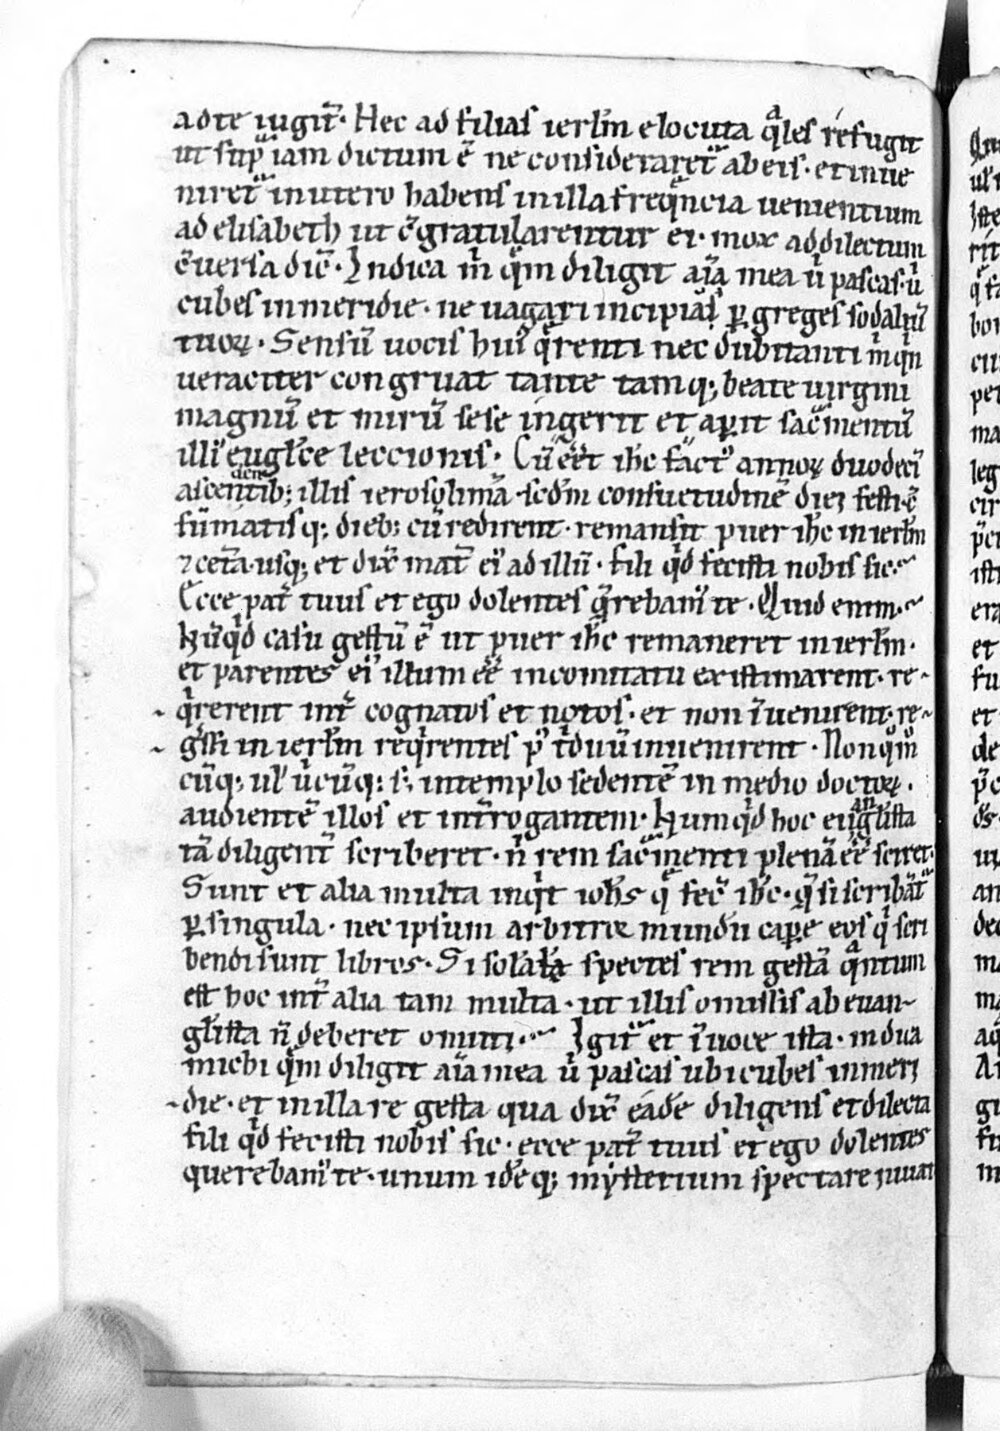 adte iugit̄. Hec ad filias ierl̄m elocuta q̄les refugit
ut sup̄ iam dictum ē ne consideraret̄ ab eis. et inue
niret̄ in utero habens in illa freq̄ncia uenientium
ad elisabeth ut c̄gratularentur ei. mox ad dilectum
c̄uersa dic̄. Indica m̄ q̄m diligit aīa mea u̇ pascas. u̇
cubes in meridie. ne uagari incipias p̱ greges sodaliū
tuoꝝ. Sensū uocis hui᾽ q̄renti nec dubitanti
ueraciter congruat tante tamq; beate uirgini
magnū et mirū sese ingerit et aꝑit sac̄mentū
illi᾽ eugl̄ce leccionis. Cū eēt ih̄c fact᾽ annoꝝ duodecī
ascendentib; illis ierosolimā scd̄m consuetudinē diei festi. c̄
sūmatisq; dieb; cū redirent. remansit puer ih̄c in ierl̄m
⁊ cet̄a. usq; et dix̄ mat̄ ei᾽ ad illū. fili q̄d fecisti nobis sic.
Ecce pat̄ tuus et ego dolentes q̄rebam᾽ te. Quid enim.
Nūq̄d casu gestū ē ut puer ih̄c remaneret in ierl̄m.
et parentes ei᾽ illum eē in comitatu existimarent. re-
q̄rerent int̄ cognatos et notos. et non īuenirent. re-
gssi in ierl̄m req̄rentes p᾽ t̄duū inuenirent. Non q̊m̊
cūq; ul᾽ u̇cūq; s; in templo sedentē in medio doctoꝝ.
audientē illos et int̄rogantem. Numq̄d hoc euangl̄ista
tā diligent̄ scriberet. n̄ rem sac̄menti plenā eē sciret.
Sunt et alia multa inq̄t ioh̄s q̄ fec̄ ih̄c. q̄ si scribāt̄
ꝑ singula. nec ipsum arbitror mundū caꝑe eos q̄ scri
bendi sunt libros. Si sola spectes rem gestā q̄ntum
est hoc int̄ alia tam multa. ut illis omissis ab euan-
gl̄ista n̄ deberet omitti. Igit̄ et ī uoce ista. indica
michi q̄m diligit aīa mea u̇ pascas ubi cubes in meri
die. et in illa re gesta qua dix̄ eadē diligens et dilecta
fili q̄d fecisti nobis sic. ecce pat̄ tuus et ego dolentes
querebam᾽ te. unum idēq; mẏsterium spectare iuuat